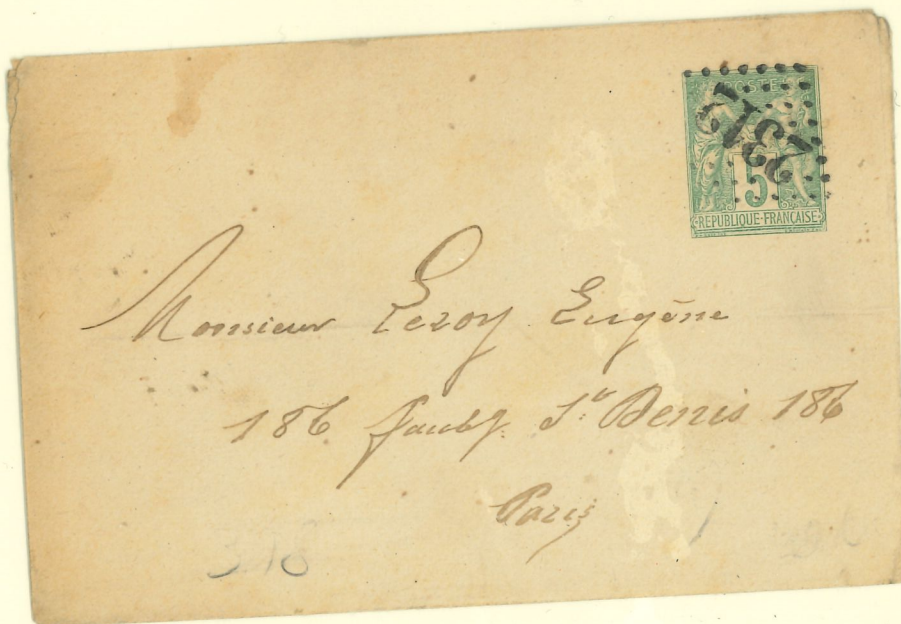 POSTES
5
REPUBLIQUE-FRANÇAISE
Monsieur Leroy Eugène
186 faubg. St Denis 186
Paris
318